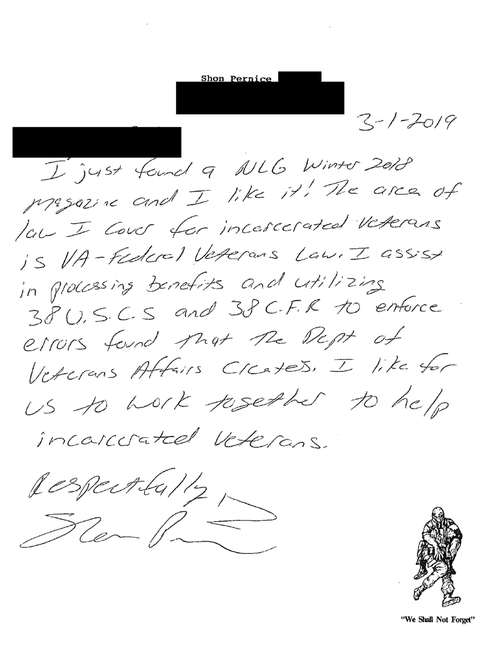 Shon Pernice
3-1-2019
I just found a NLG Winter 2018
magazine and I like it! The area of
law I cover for incarcerated veterans
is VA-Federal Veterans Law. I assist
in processing benefits and utilizing
38 U.S.C.S and 38 C.F.R to enforce
errors found that the Dept of
Veterans Affairs creates. I like for
us to work together to help
incarcerated veterans.
Respectfully,
Shon P
"We Shall Not Forget"